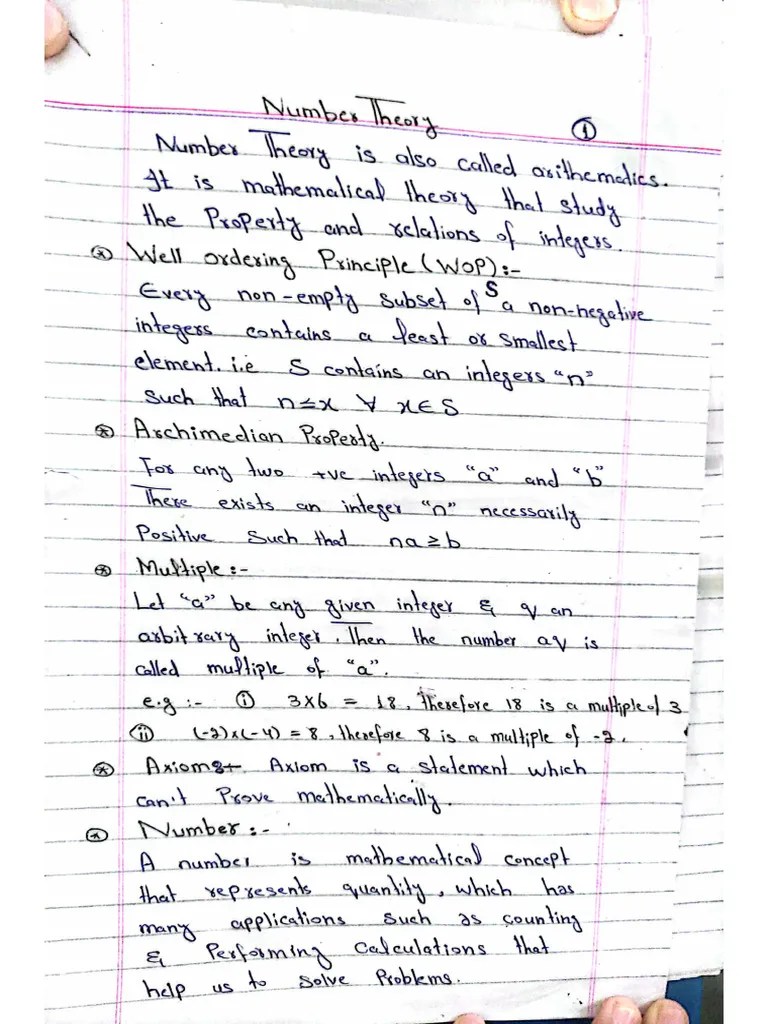 Number Theory
①
Number Theory is also called arithematics.
It is mathematical theory that study
the Property and relations of integers.
⊛ Well ordering Principle (WOP):-
Every non-empty subset of S a non-negative
integers contains a least or smallest
element. i.e S contains an integers "n"
such that n≤x ∀ x∈S
⊛ Archimedian Property.
For any two +ve integers "a" and "b"
There exists an integer "n" necessarily
Positive Such that na≥b
⊛ Multiple:-
Let "a" be any given integer & q an
arbitrary integer. Then the number aq is
called multiple of "a".
e.g :- ⓘ 3×6 = 18, Therefore 18 is a multiple of 3
ⓘⓘ (-2)×(-4) = 8, therefore 8 is a multiple of -2.
⊛ Axioms:- Axiom is a statement which
can't Prove mathematically.
⊛ Number:-
A number is mathematical concept
that represents quantity, which has
many applications such as counting
& Performing Calculations that
help us to solve Problems.